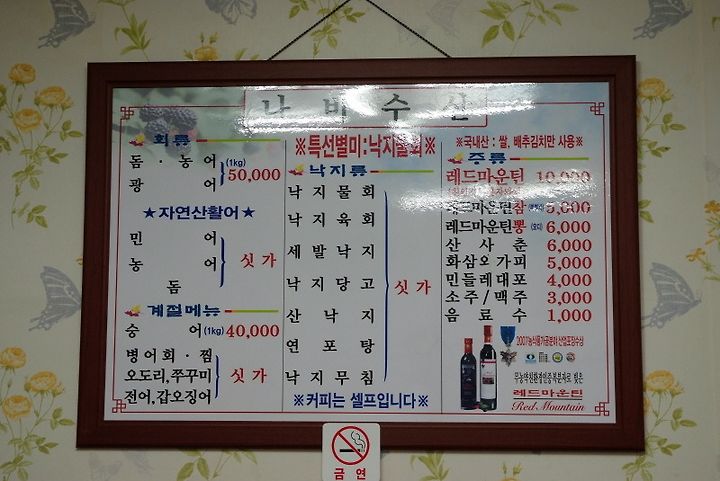 나비수산
회류
돔·농어 (1kg)
광어 50,000
★자연산활어★
민어
농어 싯가
돔
계절메뉴
숭어(1kg) 40,000
병어회·찜
오도리,쭈꾸미 싯가
전어,갑오징어
※특선별미:낙지물회※
낙지류
낙지물회
낙지육회
세발낙지
낙지당고 싯가
산낙지
연포탕
낙지무침
※커피는 셀프입니다※
※국내산 : 쌀, 배추김치만 사용※
주류
레드마운틴 10,000
레드마운틴참 5,000
레드마운틴뽕 (오디) 6,000
산사춘 6,000
화삼오가피 5,000
민들레대포 4,000
소주/맥주 3,000
음료수 1,000
레드마운틴
Red Mountain
금연